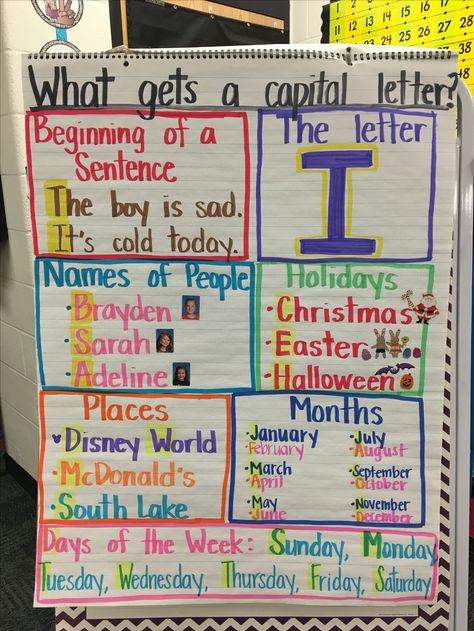 What gets a capital letter?
Beginning of a
Sentence
The boy is sad.
It's cold today.
The letter
I
Names of People
·Brayden
·Sarah
·Adeline
Holidays
·Christmas
·Easter
·Halloween
Places
Disney World
·McDonald's
·South Lake
Months
·January
·February
·March
·April
·May
·June
·July
·August
·September
·October
·November
·December
Days of the Week: Sunday, Monday,
Tuesday, Wednesday, Thursday, Friday, Saturday